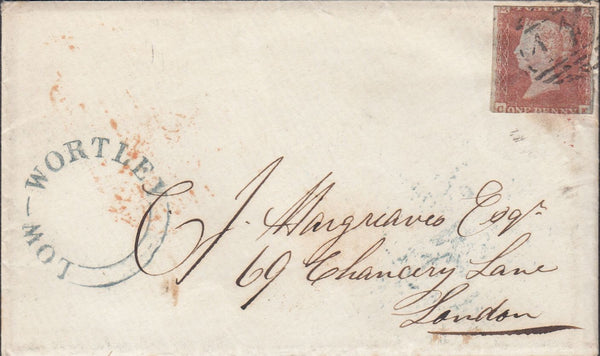 ONE PENNY
LOW-WORTLEY
J. Hargreaves Esqr
69 Chancery Lane
London